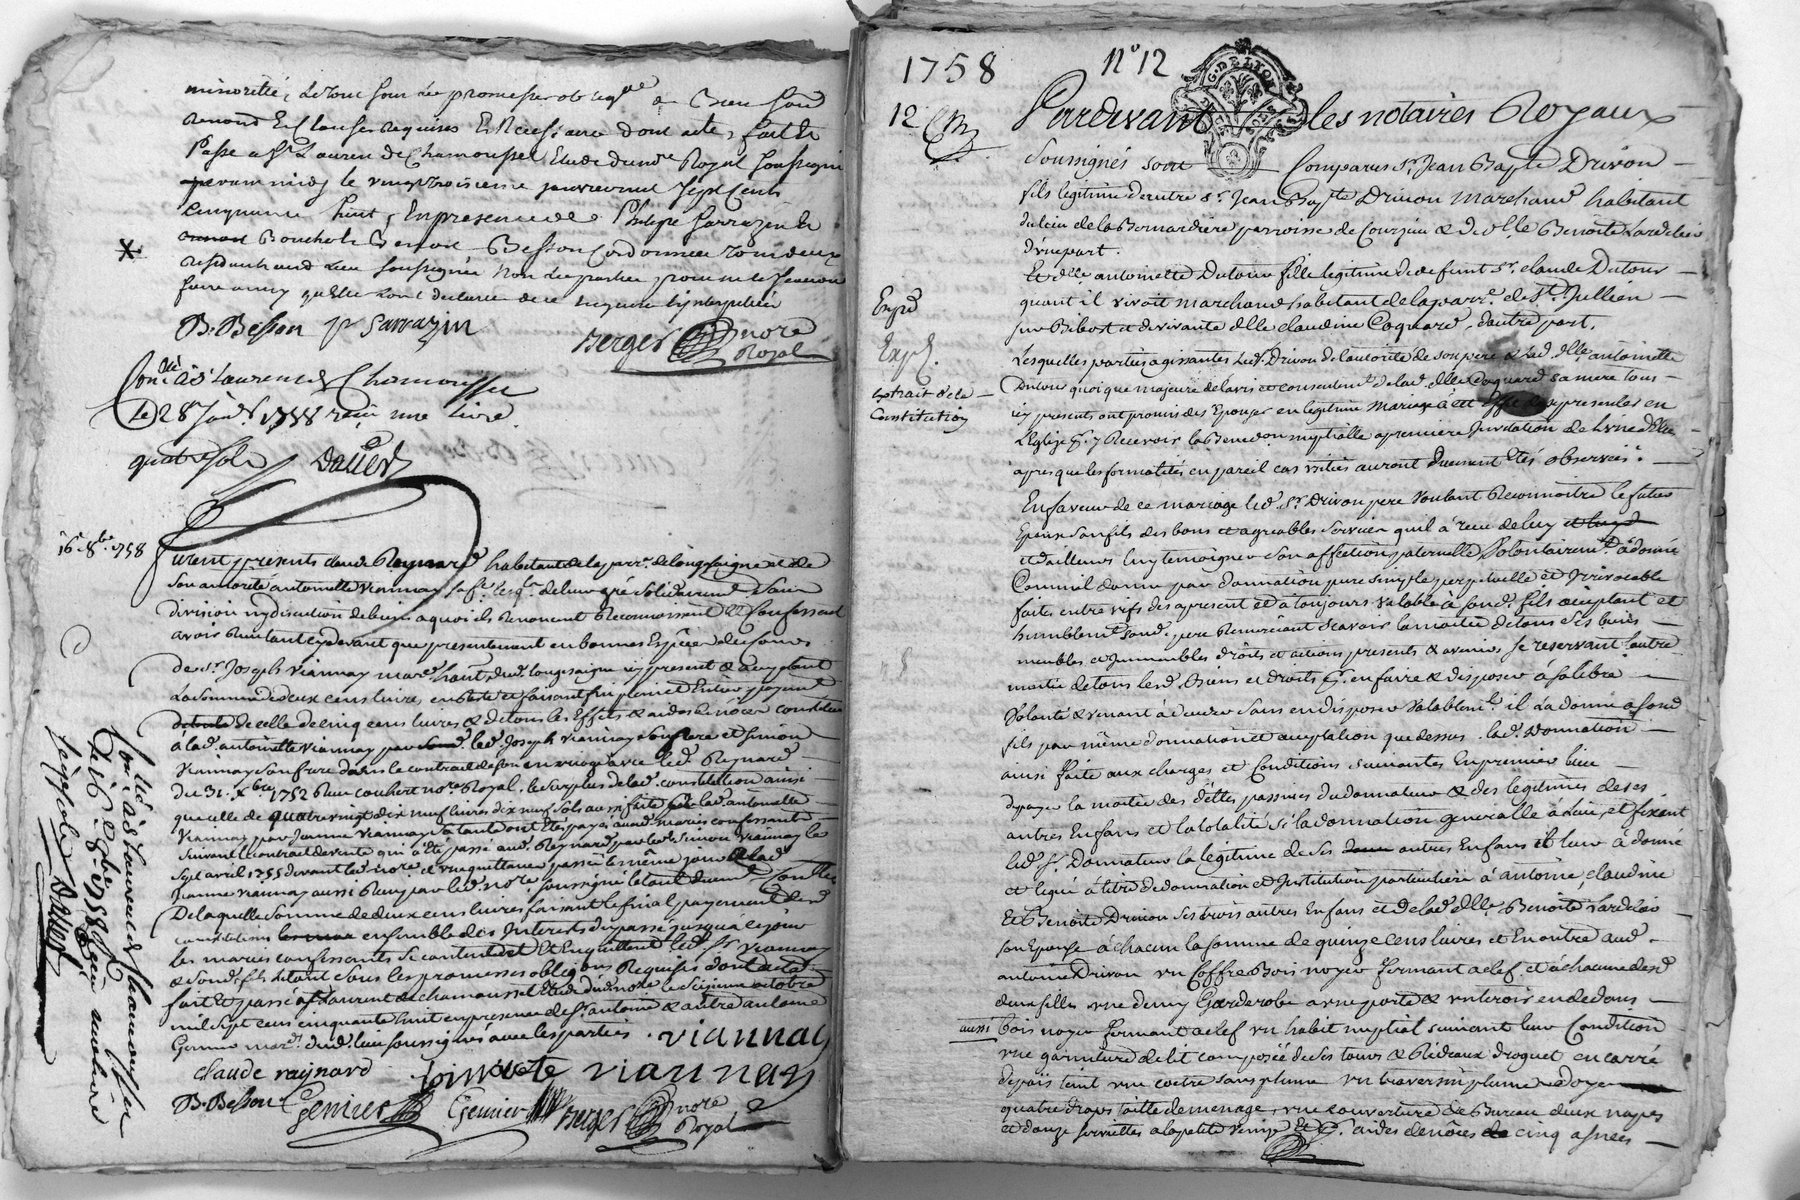 minorité, Le tout sous les promesses obligons et Bien sous
Renond et Clauses Requises et Necessaire dont acte, fait et
Passé a St Laurent de Chamousset Etude du no.re Royal soussigné
avant midy le vingt troisieme janvier mil sept Cents
Cinquante huit, En presence de Philipe Sarrazin
Benoit Besson Cordonnier
B. Besson p Sarrazin Berger no.re Royal
Con.lé à St Laurent de Chamousset
Le 28 Janv. 1758 reçu une livre
quatre sols Dauer
16e 8bre 1758
furent presents claude Reynard habitant de la parr.e de longessaigne et de
son autorité antoinette viannay sa f.e lesq.ls de leur gré solidairement sans
division ny discution de biens a quoi ils Renoncent Reconnoissent et Confessent
avoir Reçu tant cydevant que presentement en bonnes Espèces
de Sr Joseph viannay mar.d habit. dud. longessaigne icy present et acceptant
La somme de deux cens livres, en reste et faisant fin plein et Entier payement
de celle de cinq cens livres & de tous les Effets & aides de nôces constitués
à lad. antoinette viannay par led. Joseph viannay son pere et simon
viannay son frere dans le contrat de son mariage avec led. Reynard
du 31e Xbre 1752 Reçu no.re Royal, le surplus de lad. constitution ainsi
que celle de quatre vingt dix neuf livres dix neuf sols aussi faite à lad. antoinette
viannay par Jeanne viannay sa tante ont Eté payé aud. mariés confessants
suivant le contrat de vente qui a été passé aud. Reynard par led. simon viannay le
sept avril 1755 devant led. no.re, et quittance passée le même jour à lad.
Jeanne viannay aussi Reçu par led. no.re soussigné
De laquelle somme de deux cens livres faisant le final payement de lad.
constitution ensemble des Interests du passé jusqua ce jour
les mariés confessants se contentent Et En quittent led. Sr viannay
& sond. fils le tout sous les promesses obligons Requises dont acte
fait Et passé a St Laurent de chamousset Etude dud. no.re le seizieme octobre
mil sept cens cinquante huit en presence de Sr antoine & autre antoine
Genier mar.ds dud. lieu soussignés avec les parties. viannay
claude raynard toinette viannay
B. Besson Genier Genier Berger no.re Royal
Con.lé à St Laurent de chamousset
le 16e 8bre 1758 Reçu
sept sols Dauer
1758 N° 12
12
G. DE LYON
Pardevant les notaires Royaux
Soussignés sont Comparus Sr Jean Bap.te Drivon
fils legitime d'autre Sr Jean Bap.te Drivon marchand habitant
du lieu de la Bernardiere parroisse de Courzieu & de d.lle Benoite Lardelier
d'une part.
Et d.lle antoinette Dutour fille legitime de defunt Sr claude Dutour
quant il vivoit marchand habitant de la parr.e de St Jullien
sur Bibost et de vivante d.lle claudine Coquard, d'autre part.
Exp.
Extrait de la
Constitution
Lesquelles parties agissantes led. Drivon de l'autorité de son pere & lad. d.lle antoinette
Dutour quoique majeure de l'avis et consentem.t de lad. d.lle Coquard sa mere tous
icy presents ont promis des Epouser en legitime Mariage à cet Effet se presenter en
L'Eglise p.r y Recevoir la Benedon nuptialle a premiere Invitation de L'une d'elle
apres que les formalités en pareil cas usitées auront duement Etés observées.
En faveur de ce mariage led. Sr Drivon pere voulant Reconnoitre le futur
Epoux son fils des bons et agreables services qu'il à reçu de luy
et d'ailleurs luy temoigner son affection paternelle Volontairem.t à donné
Comme il donne par donnation pure simple perpetuelle et Irrevocable
faite entre vifs des a present et à toujours valable à sond. fils acceptant et
humblem.t sond. pere Remerciant Scavoir la moitié de tous ses biens
meubles et Immeubles droits et actions presents & avenir Se reservant l'autre
moitié de tous lesd. Biens et droits p.r en faire & disposer à sa libre
Volonté & venant à deceder sans en disposer valablem.t il La donne a sond
fils par même donnation et acceptation que dessus. lad. Donnation
ainsi faite aux charges et Conditions suivantes En premier lieu
de payer la moitié des dettes passives du donnateur & des legitimes de ses
autres Enfans et la totalité si la donnation generalle à Lieu, et fixent
led. Sr Donnateur la legitime de ses autres Enfans il leur à donné
et legué a titre de donnation et Institution particuliere à antoine, claudine
Et Benoite Drivon ses trois autres Enfans et de lad. d.lle Benoite Lardelier
son Epouse à chacun la somme de quinze cens livres et En outre aud.
antoine Drivon un Coffre Bois noyer fermant a clef, et à chacune desd.
deux filles une demy Garderobe a une porte & un tiroir en dedans
aussi bois noyer fermant a clef un habit nuptial suivant leur Condition
une garniture de lit composée de ses tours & Rideaux droguet en carré
depais teint une coitre sans plume un traversin plume
quatre draps toille de menage, une couverture de Bureau deux napes
et douze serviettes a la petite Venise Et p.r aides de nôces cinq asnées